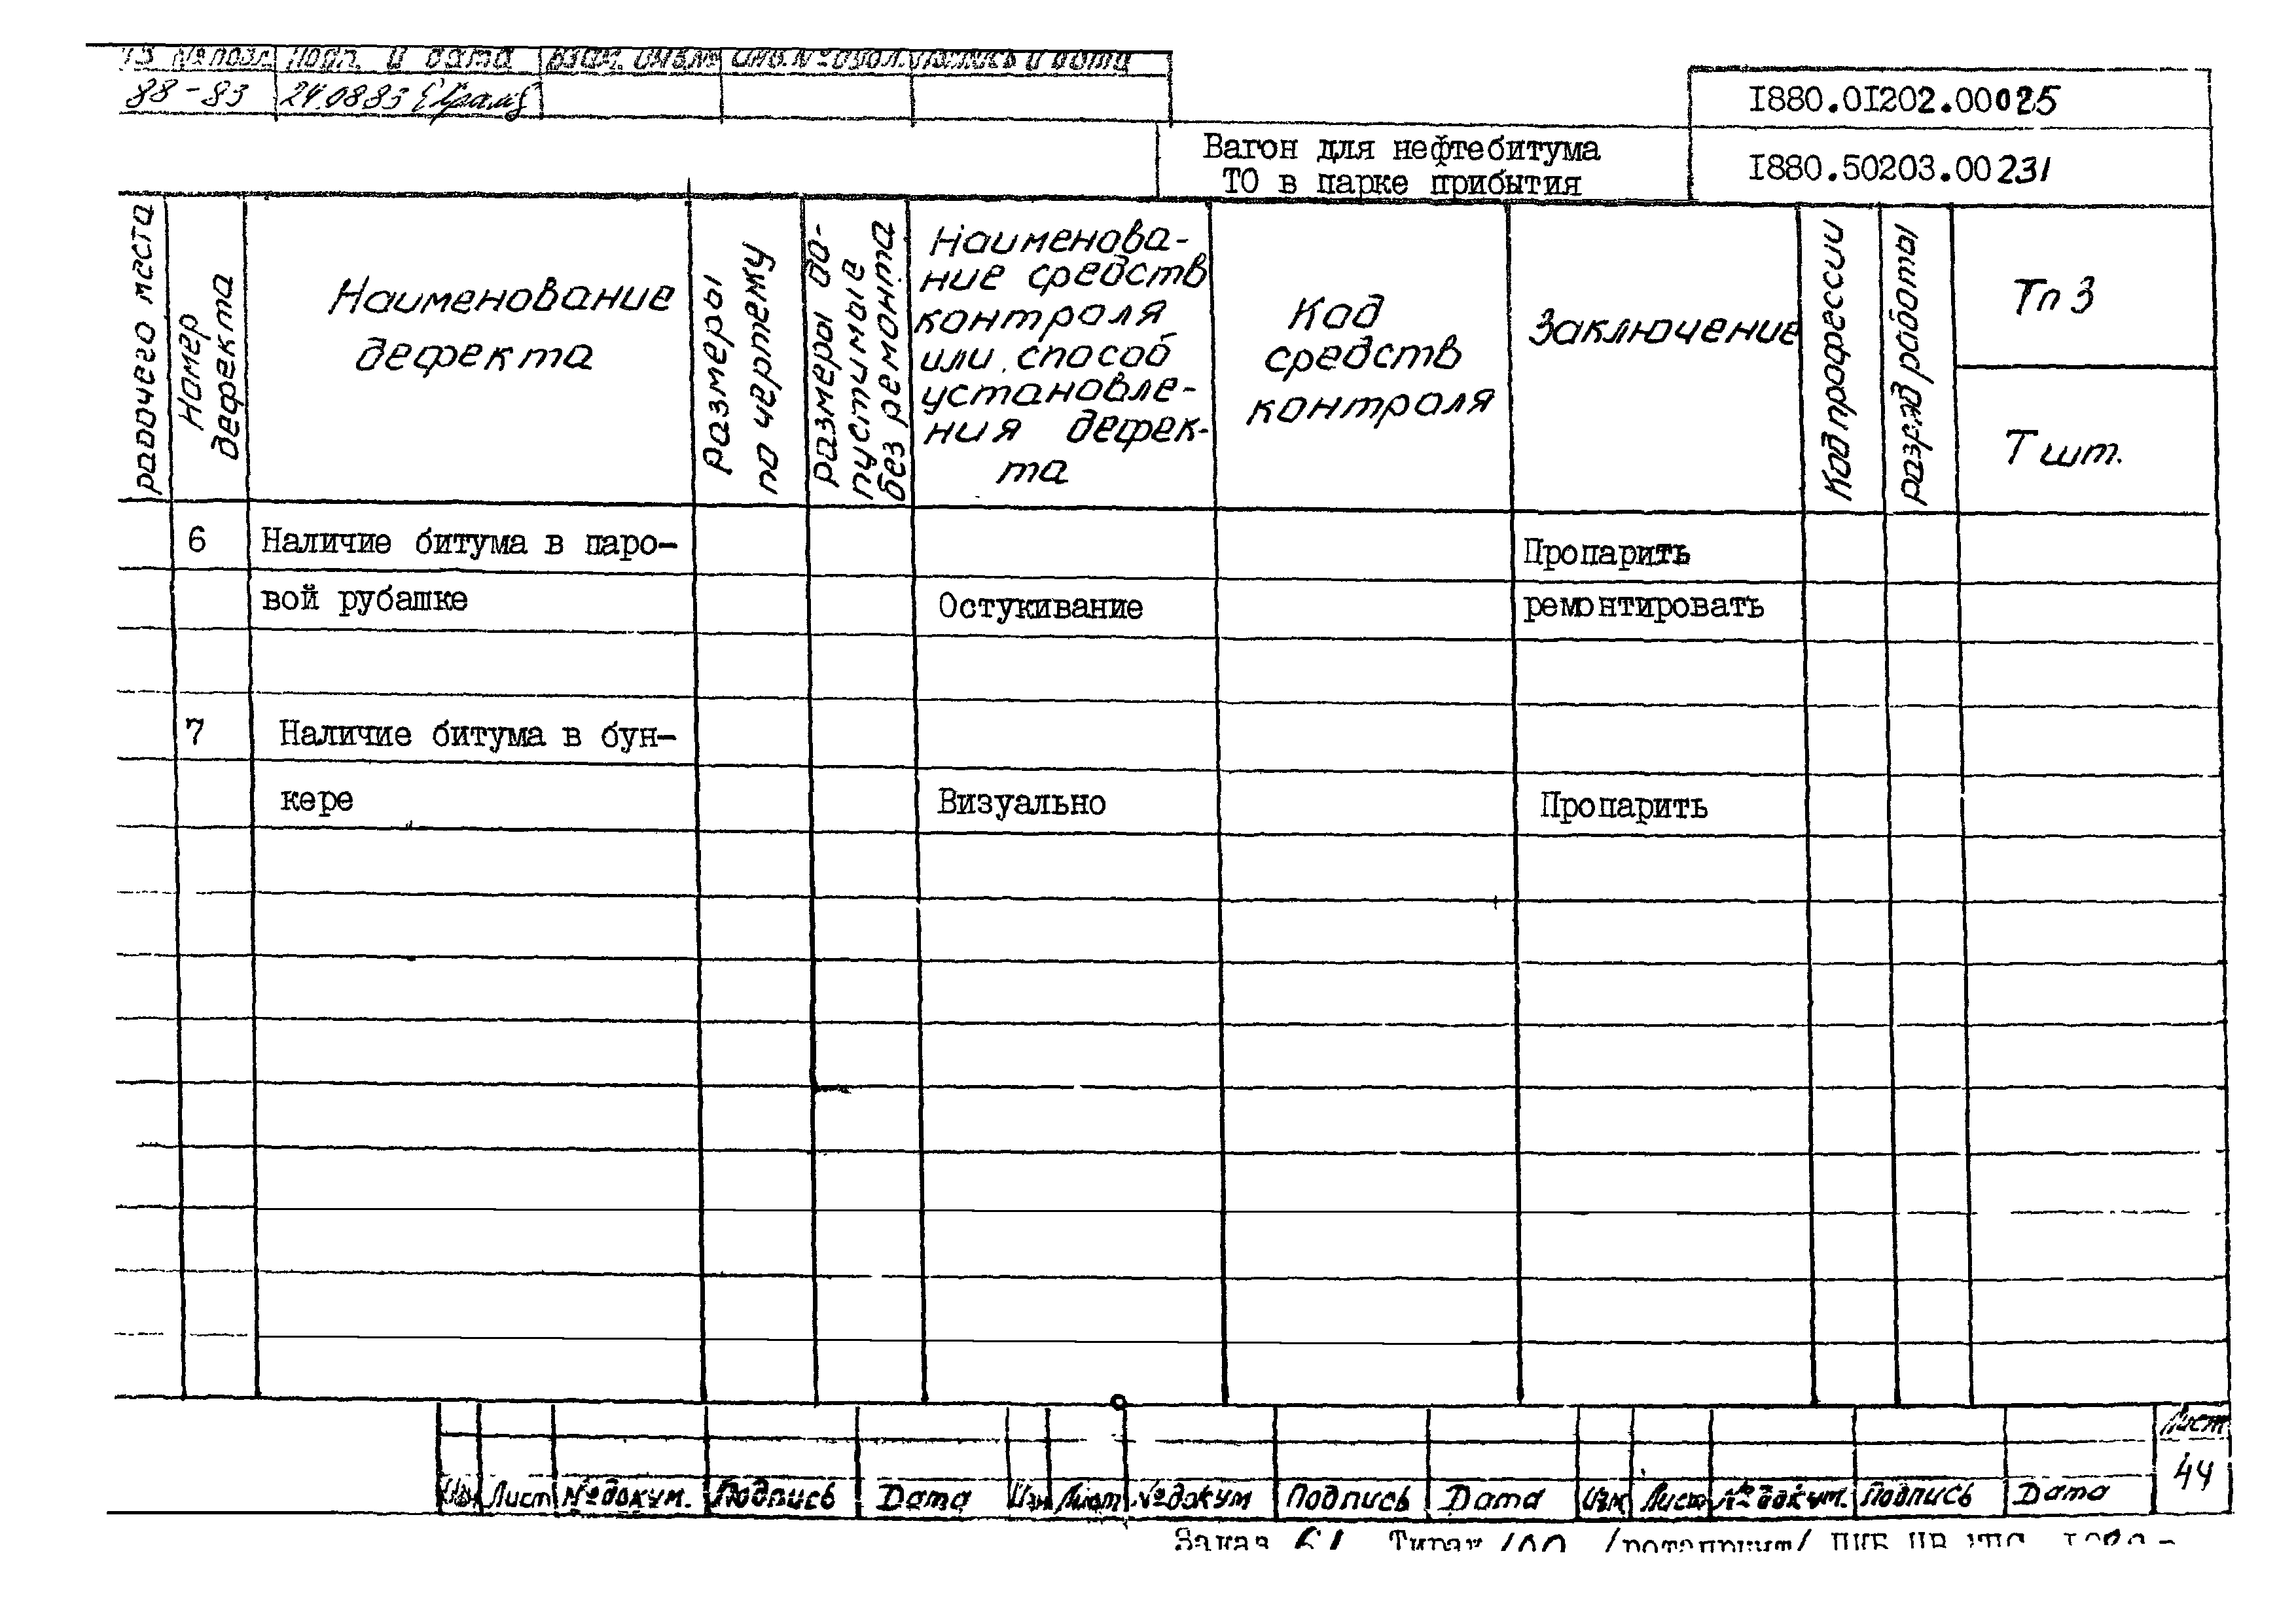 № подл. Подп. и дата Взам. инв.№ Инв.№ дубл. Подпись и дата
88-83 24.08.83
I880.0I202.00025
Вагон для нефтебитума
ТО в парке прибытия
I880.50203.00231
рабочего места
Номер
дефекта
Наименование
дефекта
Размеры
по чертежу
Размеры до-
пустимые
без ремонта
Наименова-
ние средств
контроля
или способ
установле-
ния дефек-
та
Код
средств
контроля
Заключение
Код профессии
разряд работы
Тп 3
Т шт.
6 Наличие битума в паро- Пропарить
вой рубашке Остукивание ремонтировать
7 Наличие битума в бун-
кере Визуально Пропарить
Лист
44
Изм Лист № докум. Подпись Дата Изм Лист № докум Подпись Дата Изм Лист № докум. Подпись Дата
Заказ 61 Тираж 100 /ротапринт/ ПКБ ЦВ МПС